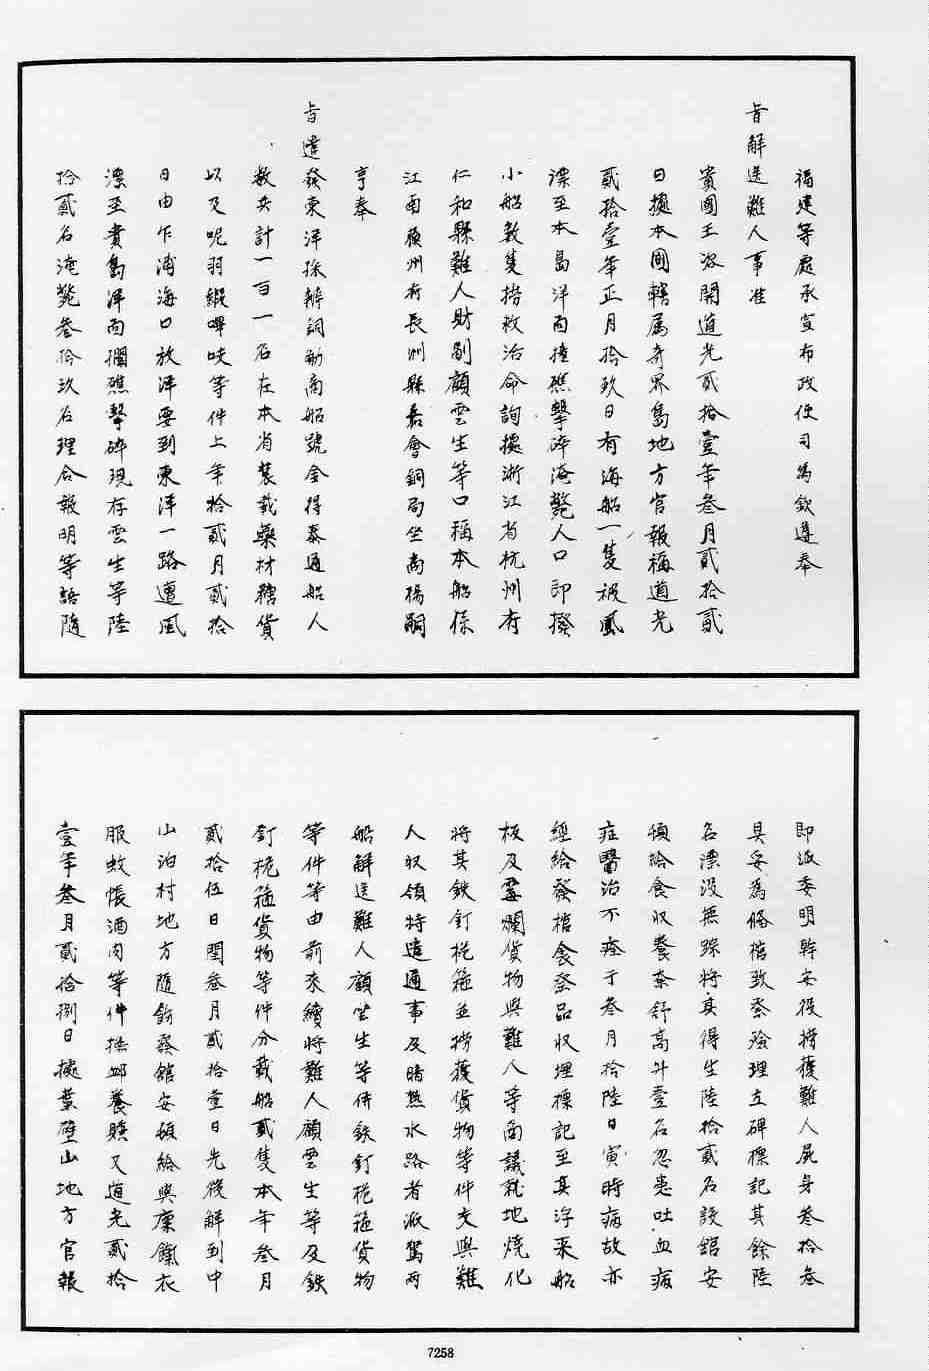 福建等處承宣布政使司為欽遵奉
旨解送難人事准
貴國王咨開道光貳拾壹年叁月貳拾貳
日據本國轄属奇界島地方官報稱道光
貳拾壹年正月拾玖日有海船一隻被風
漂至本島洋面撞礁擊碎淹斃人口即撥
小船數隻撈救治命詢據浙江省杭州府
仁和縣難人財副顧雲生等口稱本船係
江南蘇州府長洲縣嘉會銅局坐商楊嗣
亨奉
旨遣發東洋採辦銅觔商船號金得泰通船人
数共計一百一名在本省裝載藥材糖貨
以及呢羽緞嗶吱等件上年拾貳月貳拾
日由乍浦海口放洋要到東洋一路遭風
漂至貴島洋面擱礁擊碎現存雲生等陸
拾貳名淹斃叁拾玖名理合報明等語隨
即派委明幹安役撈獲難人屍身叁拾叁
具妥為備棺致祭殮理立碑標記其餘陸
名漂没無踪將其得生陸拾貳名設舘安
頓給食收養奈舒高升壹名忽患吐血病
症醫治不痊于叁月拾陸日寅時病故亦
經給發棺食祭品收埋標記至其浮来船
板及霉爛貨物與難人等商議就地燒化
將其鉄釘桅箍並撈獲貨物等件交與難
人収領特遣通事及暗熟水路者派駕両
船解送難人顧雲生等併鉄釘桅箍貨物
等件等由前來續將難人顧雲生等及鉄
釘桅箍貨物等件分載船貳隻本年叁月
貳拾伍日閏叁月貳拾壹日先後解到中
山泊村地方隨飭發舘安頓給與廩餼衣
服蚊帳酒肉等件撫卹養贍又道光貳拾
壹年叁月貳拾捌日據葉壁山地方官報
7258